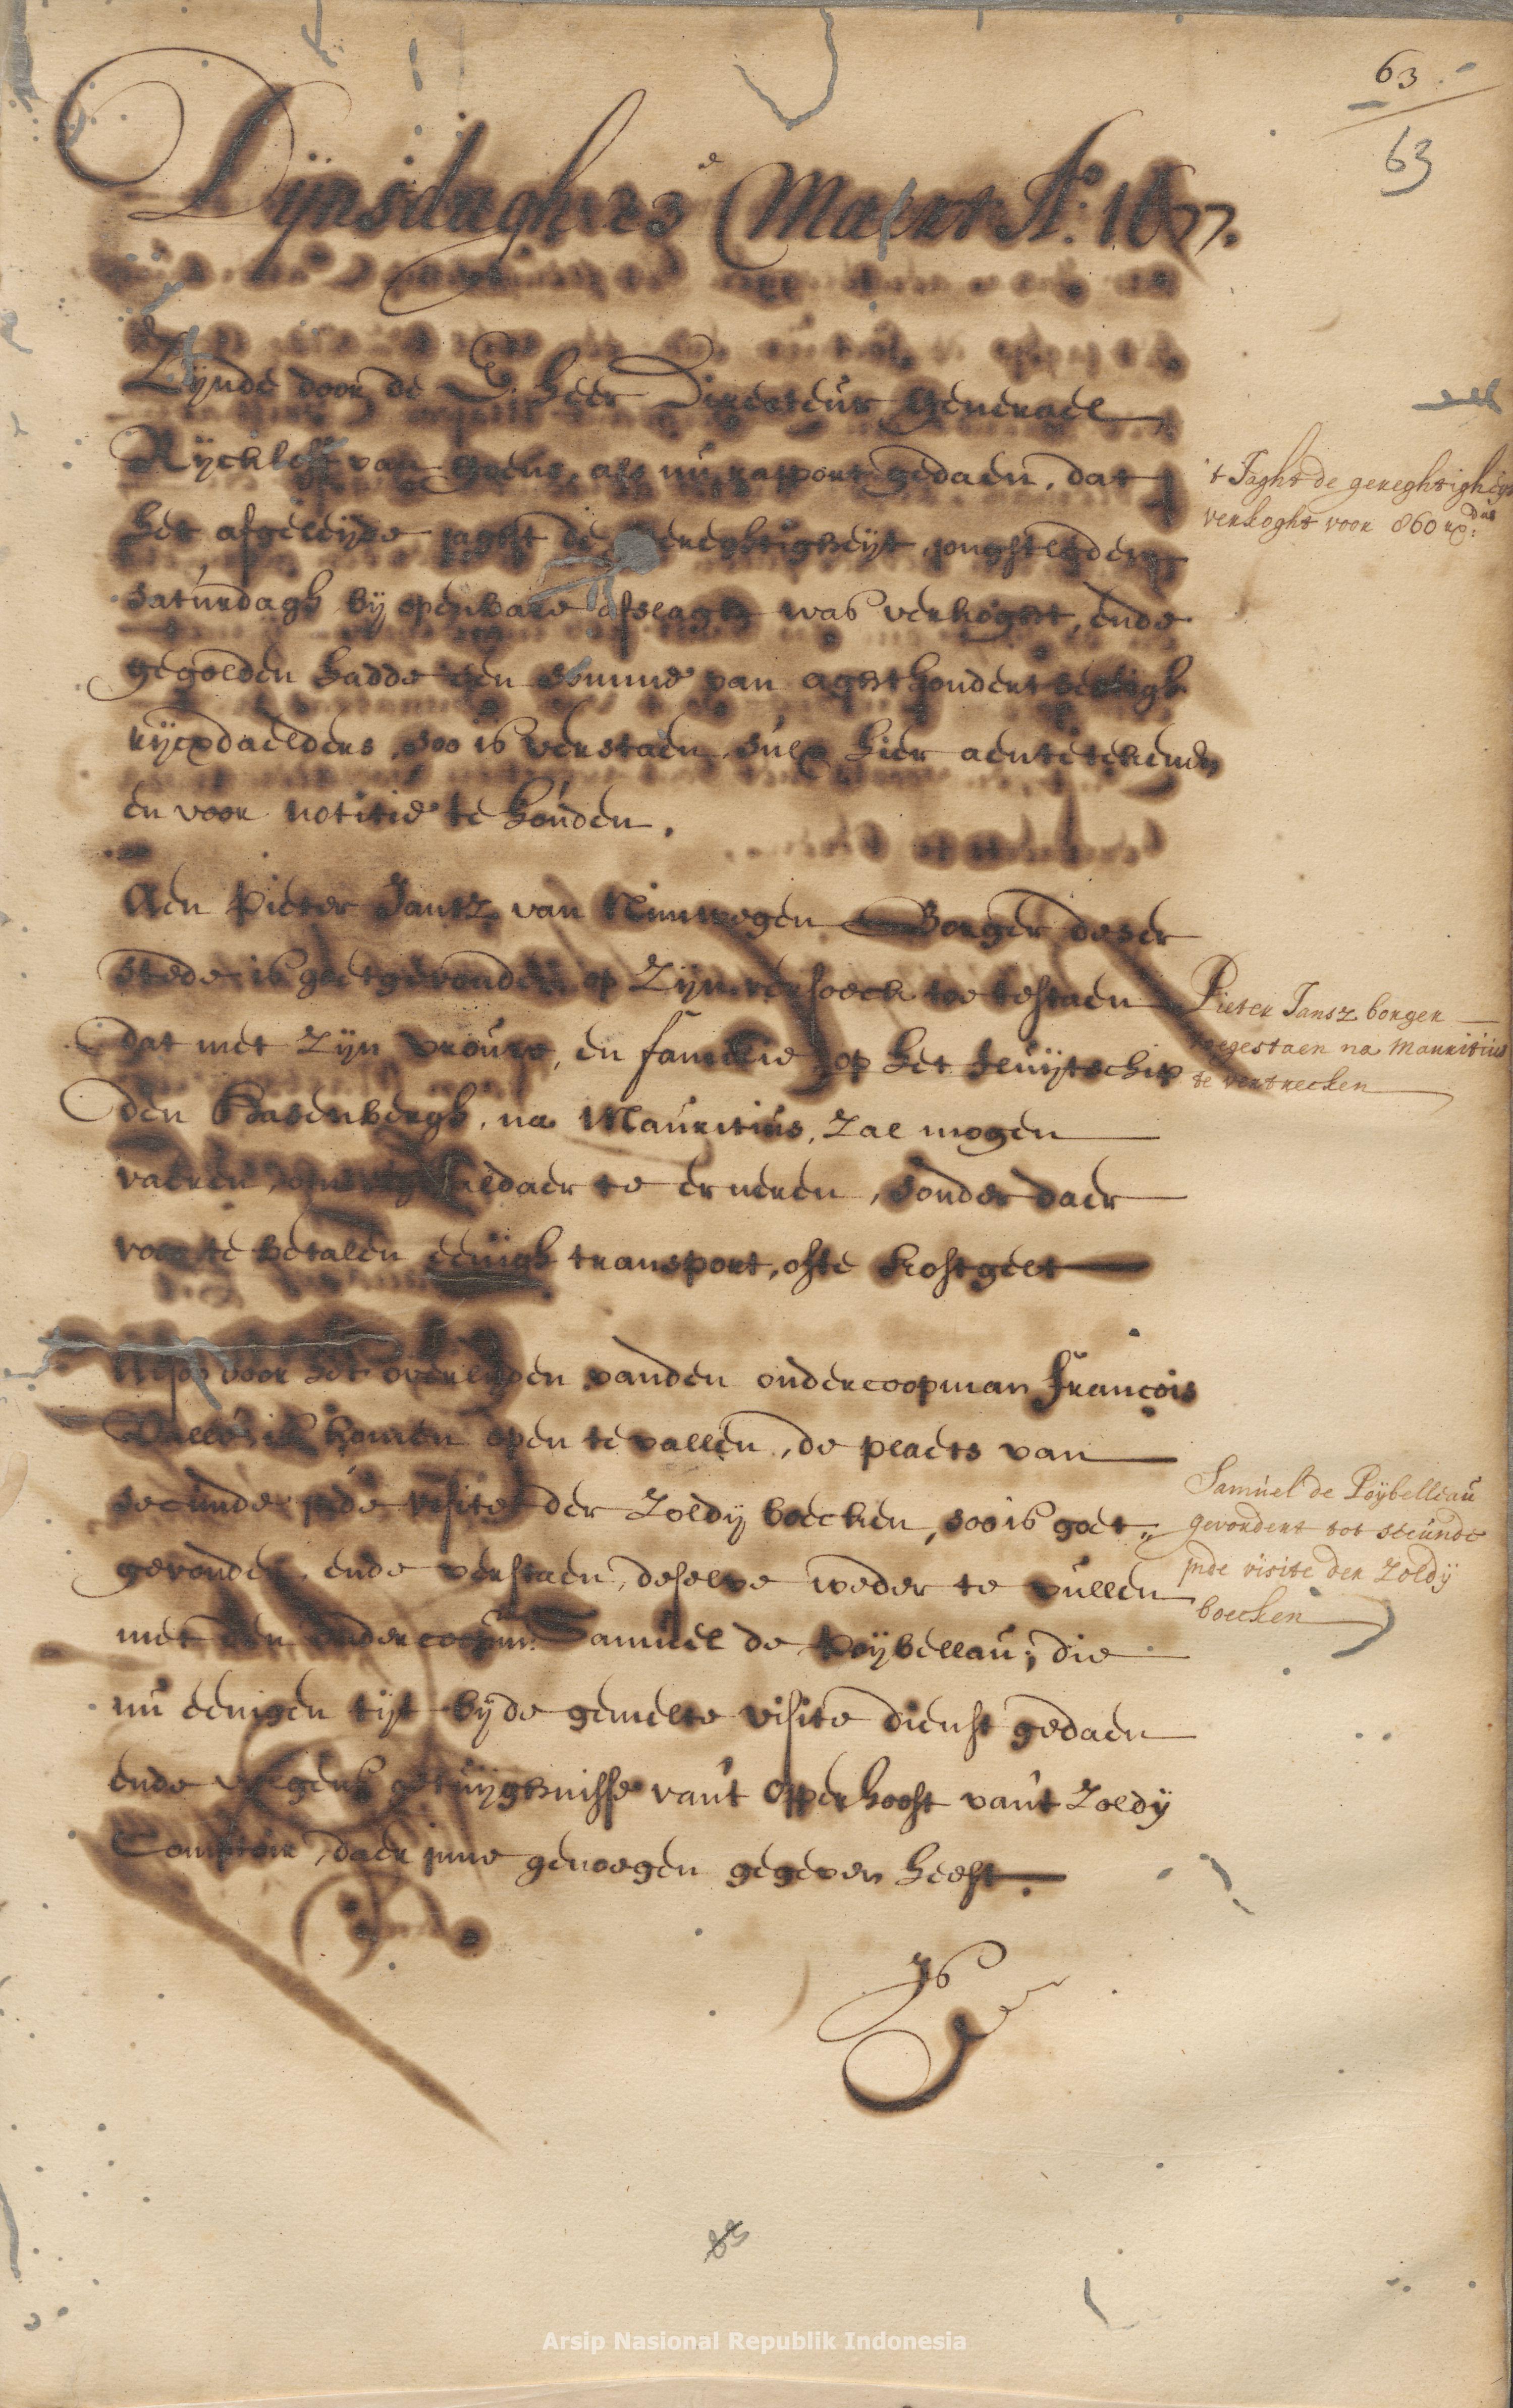 63
63
Dijnsdagh 23e Maert Ao: 1677.
Zijnde door de E. heer Directeur Generael
Rijckloff van Goens, als nu rapport gedaen, dat
het afgeleijde jaght de Gereghtigheijt, jonghstleden
saturdagh bij openbare afslagh was verkoght, ende
gegolden hadde een somme van aght hondert sestigh
rijcxdaelders, soo is verstaen, sulx hier aen te tekenen
en voor notitie te houden.
't Jaght de gereghtigheijt
verkoght voor 860 rxds:
Aen Pieter Jansz. van Nimwegen Borger deser
stede is goetgevonden op Zijn versoeck toe te staen
dat met Zijn vrouw, en familie op het fluijtschip
den Hasenbergh, na Mauritius, Zal mogen
varen, om sigh aldaer te erneren, sonder daer
voor te betalen eenigh transport, ofte kostgelt
Pieter Jansz borger
toegestaen na Mauritius
te vertrecken
Alsoo voor het overlijden vanden ondercoopman François
is komen open te vallen, de plaets van
secunde inde visite der Zoldij boecken, soo is goet„
gevonden, ende verstaen, deselve weder te vullen
met den ondercoopm: Samuel de Poijbellau; die
nu eenigen tijt bij de gemelte visite dienst gedaen
ende volgens getuijghnisse van't opperhooft van't Zoldij
Comptoir, daer inne genoegen gegeven heeft.
Samuel de Poijbelleau
gevordert tot secunde
inde visite der Zoldij
boecken
Arsip Nasional Republik Indonesia